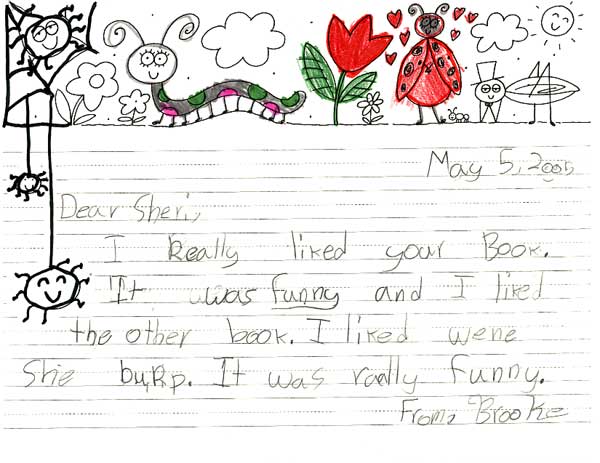 May 5, 2005
Dear Sheri,
I Really liked your Book.
It was funny and I liked
the other book. I liked wene
She buRp. It was really funny.
From, Brooke